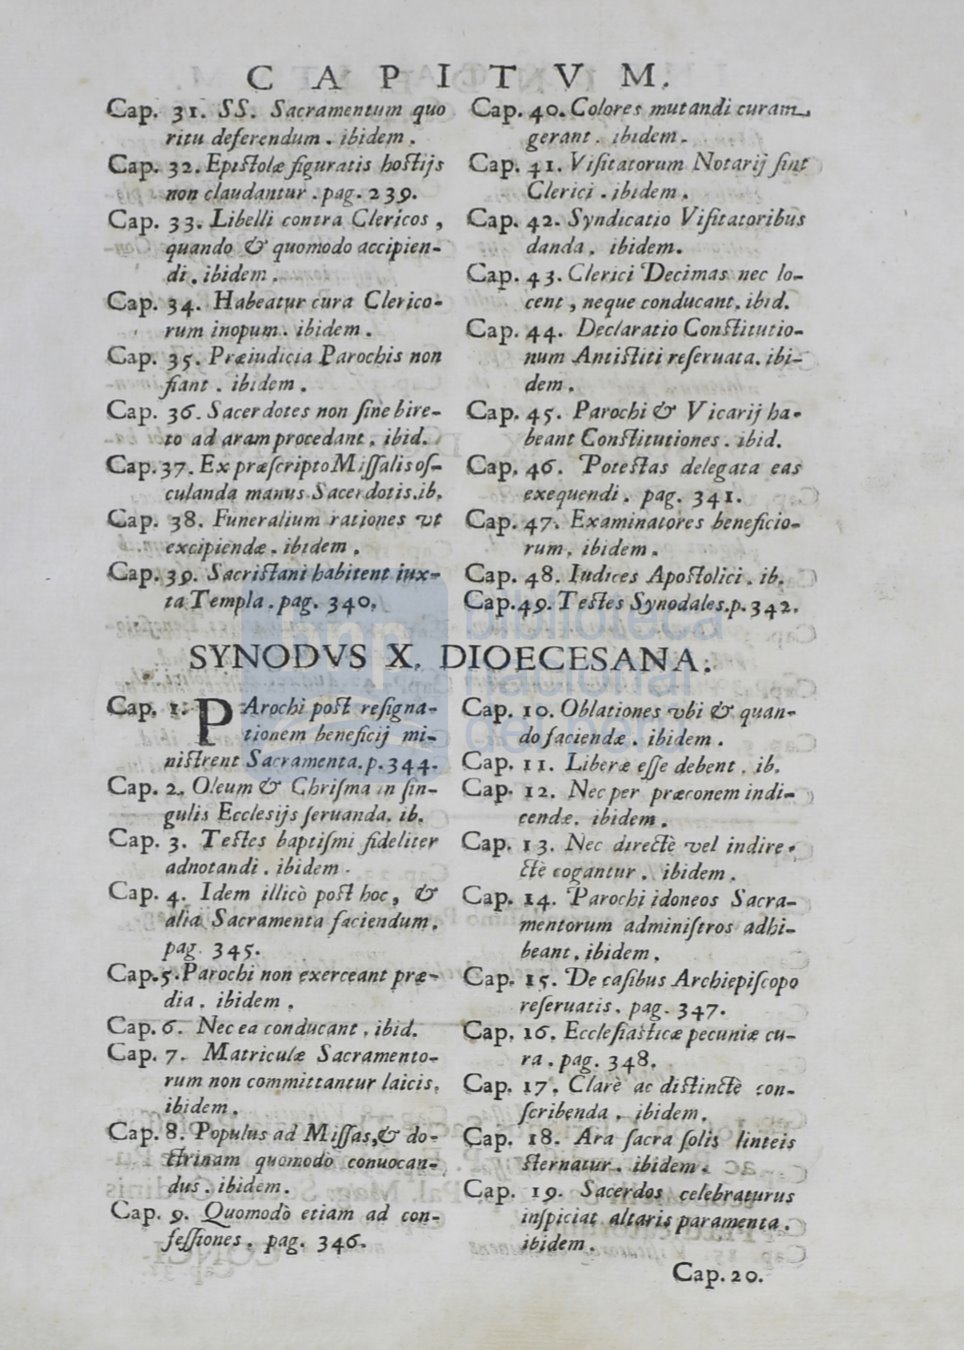 CAPITVM.
Cap. 31. SS. Sacramentum quo
ritu deferendum. ibidem.
Cap. 32. Epistolæ figuratis hostijs
non claudantur. pag. 239.
Cap. 33. Libelli contra Clericos,
quando & quomodo accipien-
di. ibidem.
Cap. 34. Habeatur cura Clerico-
rum inopum. ibidem.
Cap. 35. Præiudicia Parochis non
fiant. ibidem.
Cap. 36. Sacerdotes non sine bire-
to ad aram procedant. ibid.
Cap. 37. Ex præscripto Missalis os-
culanda manus Sacerdotis. ib.
Cap. 38. Funeralium rationes vt
excipiendæ. ibidem.
Cap. 39. Sacristani habitent iux-
ta Templa. pag. 340.
Cap. 40. Colores mutandi curam
gerant. ibidem.
Cap. 41. Visitatorum Notarij sint
Clerici. ibidem.
Cap. 42. Syndicatio Visitatoribus
danda. ibidem.
Cap. 43. Clerici Decimas nec lo-
cent, neque conducant. ibid.
Cap. 44. Declaratio Constitutio-
num Antistiti reseruata. ibi-
dem.
Cap. 45. Parochi & Vicarij ha-
beant Constitutiones. ibid.
Cap. 46. Potestas delegata eas
exequendi. pag. 341.
Cap. 47. Examinatores beneficio-
rum. ibidem.
Cap. 48. Iudices Apostolici. ib.
Cap. 49. Testes Synodales. p. 342.
SYNODVS X. DIOECESANA.
Cap. 1. PArochi post resigna-
tionem beneficij mi-
nistrent Sacramenta. p. 344.
Cap. 2. Oleum & Chrisma in sin-
gulis Ecclesijs seruanda. ib.
Cap. 3. Testes baptismi fideliter
adnotandi. ibidem.
Cap. 4. Idem illicò post hoc, &
alia Sacramenta faciendum.
pag. 345.
Cap. 5. Parochi non exerceant præ-
dia. ibidem.
Cap. 6. Nec ea conducant. ibid.
Cap. 7. Matriculæ Sacramento-
rum non committantur laicis.
ibidem.
Cap. 8. Populus ad Missas, & do-
ctrinam quomodò conuocan-
dus. ibidem.
Cap. 9. Quomodò etiam ad con-
fessiones. pag. 346.
Cap. 10. Oblationes vbi & quan-
do faciendæ. ibidem.
Cap. 11. Liberæ esse debent. ib.
Cap. 12. Nec per præconem indi-
cendæ. ibidem.
Cap. 13. Nec directè vel indire-
ctè cogantur. ibidem.
Cap. 14. Parochi idoneos Sacra-
mentorum administros adhi-
beant. ibidem.
Cap. 15. De casibus Archiepiscopo
reseruatis. pag. 347.
Cap. 16. Ecclesiasticæ pecuniæ cu-
ra. pag. 348.
Cap. 17. Clarè ac distinctè con-
scribenda. ibidem.
Cap. 18. Ara sacra solis linteis
sternatur. ibidem.
Cap. 19. Sacerdos celebraturus
inspiciat altaris paramenta.
ibidem.
Cap. 20.
biblioteca
nacional